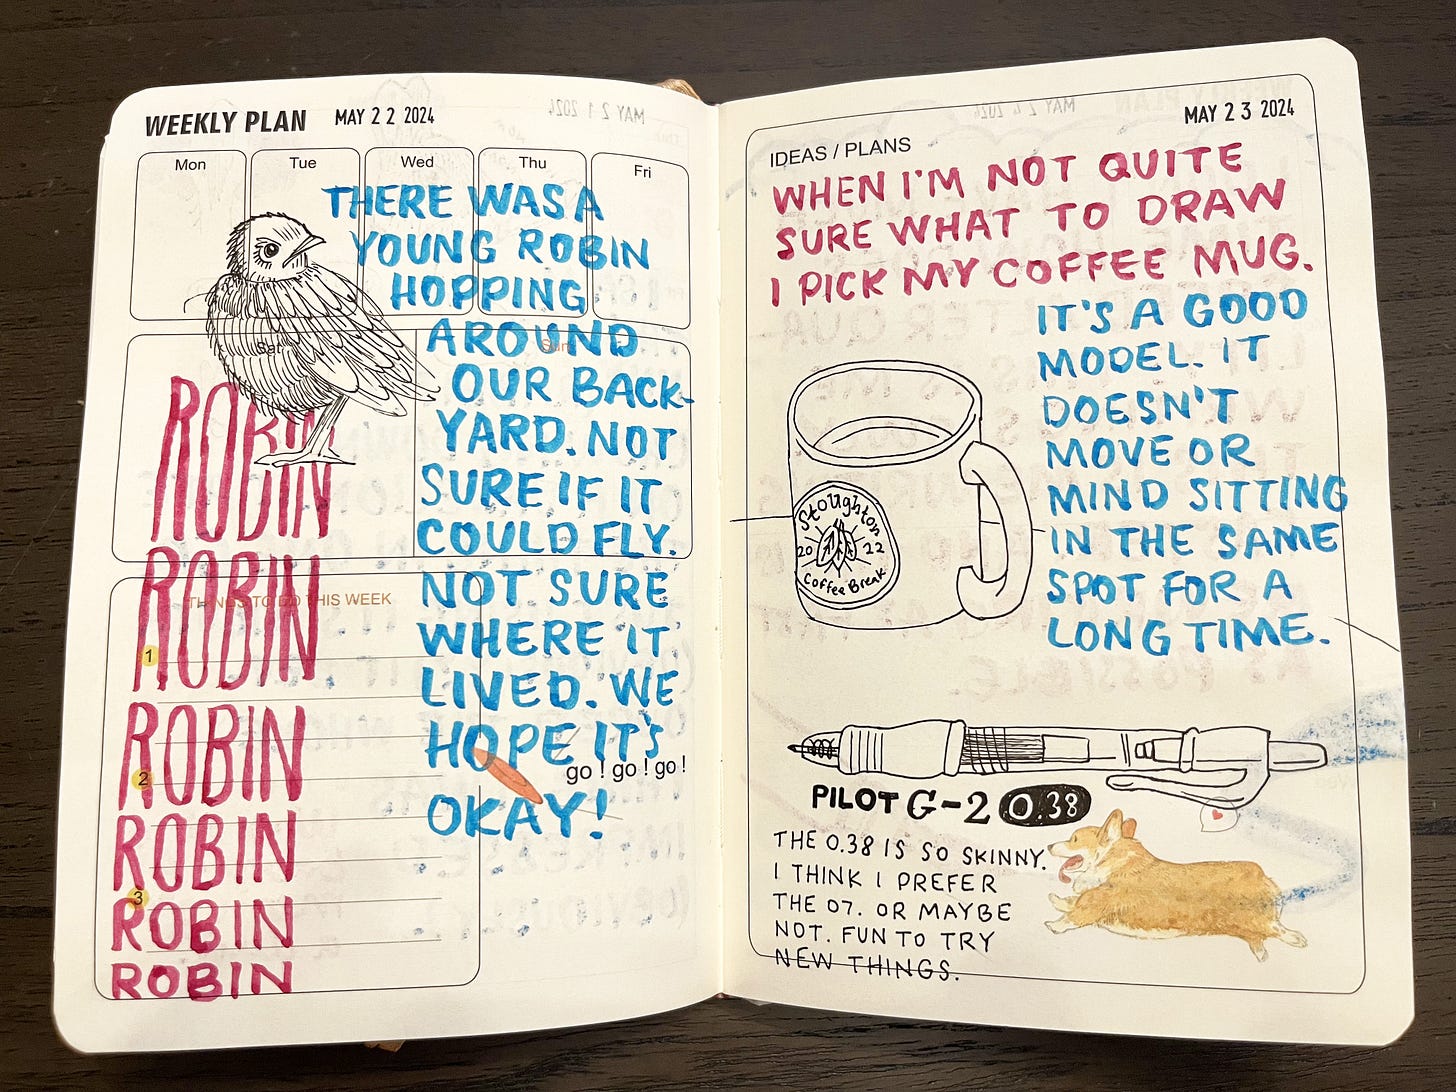 WEEKLY PLAN MAY 22 2024
MAY 21 2024
Mon Tue Wed Thu Fri
THERE WAS A
YOUNG ROBIN
HOPPING
AROUND
Sat Sun
OUR BACK-
YARD. NOT
SURE IF IT
COULD FLY.
NOT SURE
WHERE IT
LIVED. WE
HOPE IT'S
go! go! go!
OKAY!
ROBIN
ROBIN
THINGS TO DO THIS WEEK
1
ROBIN
2
ROBIN
3
ROBIN
ROBIN
MAY 23 2024
IDEAS / PLANS
WHEN I'M NOT QUITE
SURE WHAT TO DRAW
I PICK MY COFFEE MUG.
IT'S A GOOD
MODEL. IT
DOESN'T
MOVE OR
MIND SITTING
IN THE SAME
SPOT FOR A
LONG TIME.
Stoughton
20 22
Coffee Break
PILOT G-2 0.38
THE 0.38 IS SO SKINNY.
I THINK I PREFER
THE 07. OR MAYBE
NOT. FUN TO TRY
NEW THINGS.